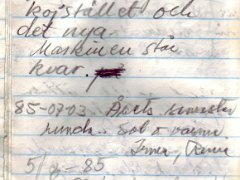 kojstället och
det nya.
Maskinen står
kvar.
85-07-03. Årets
runda. Sol o varmt
Irma,
5/8-85